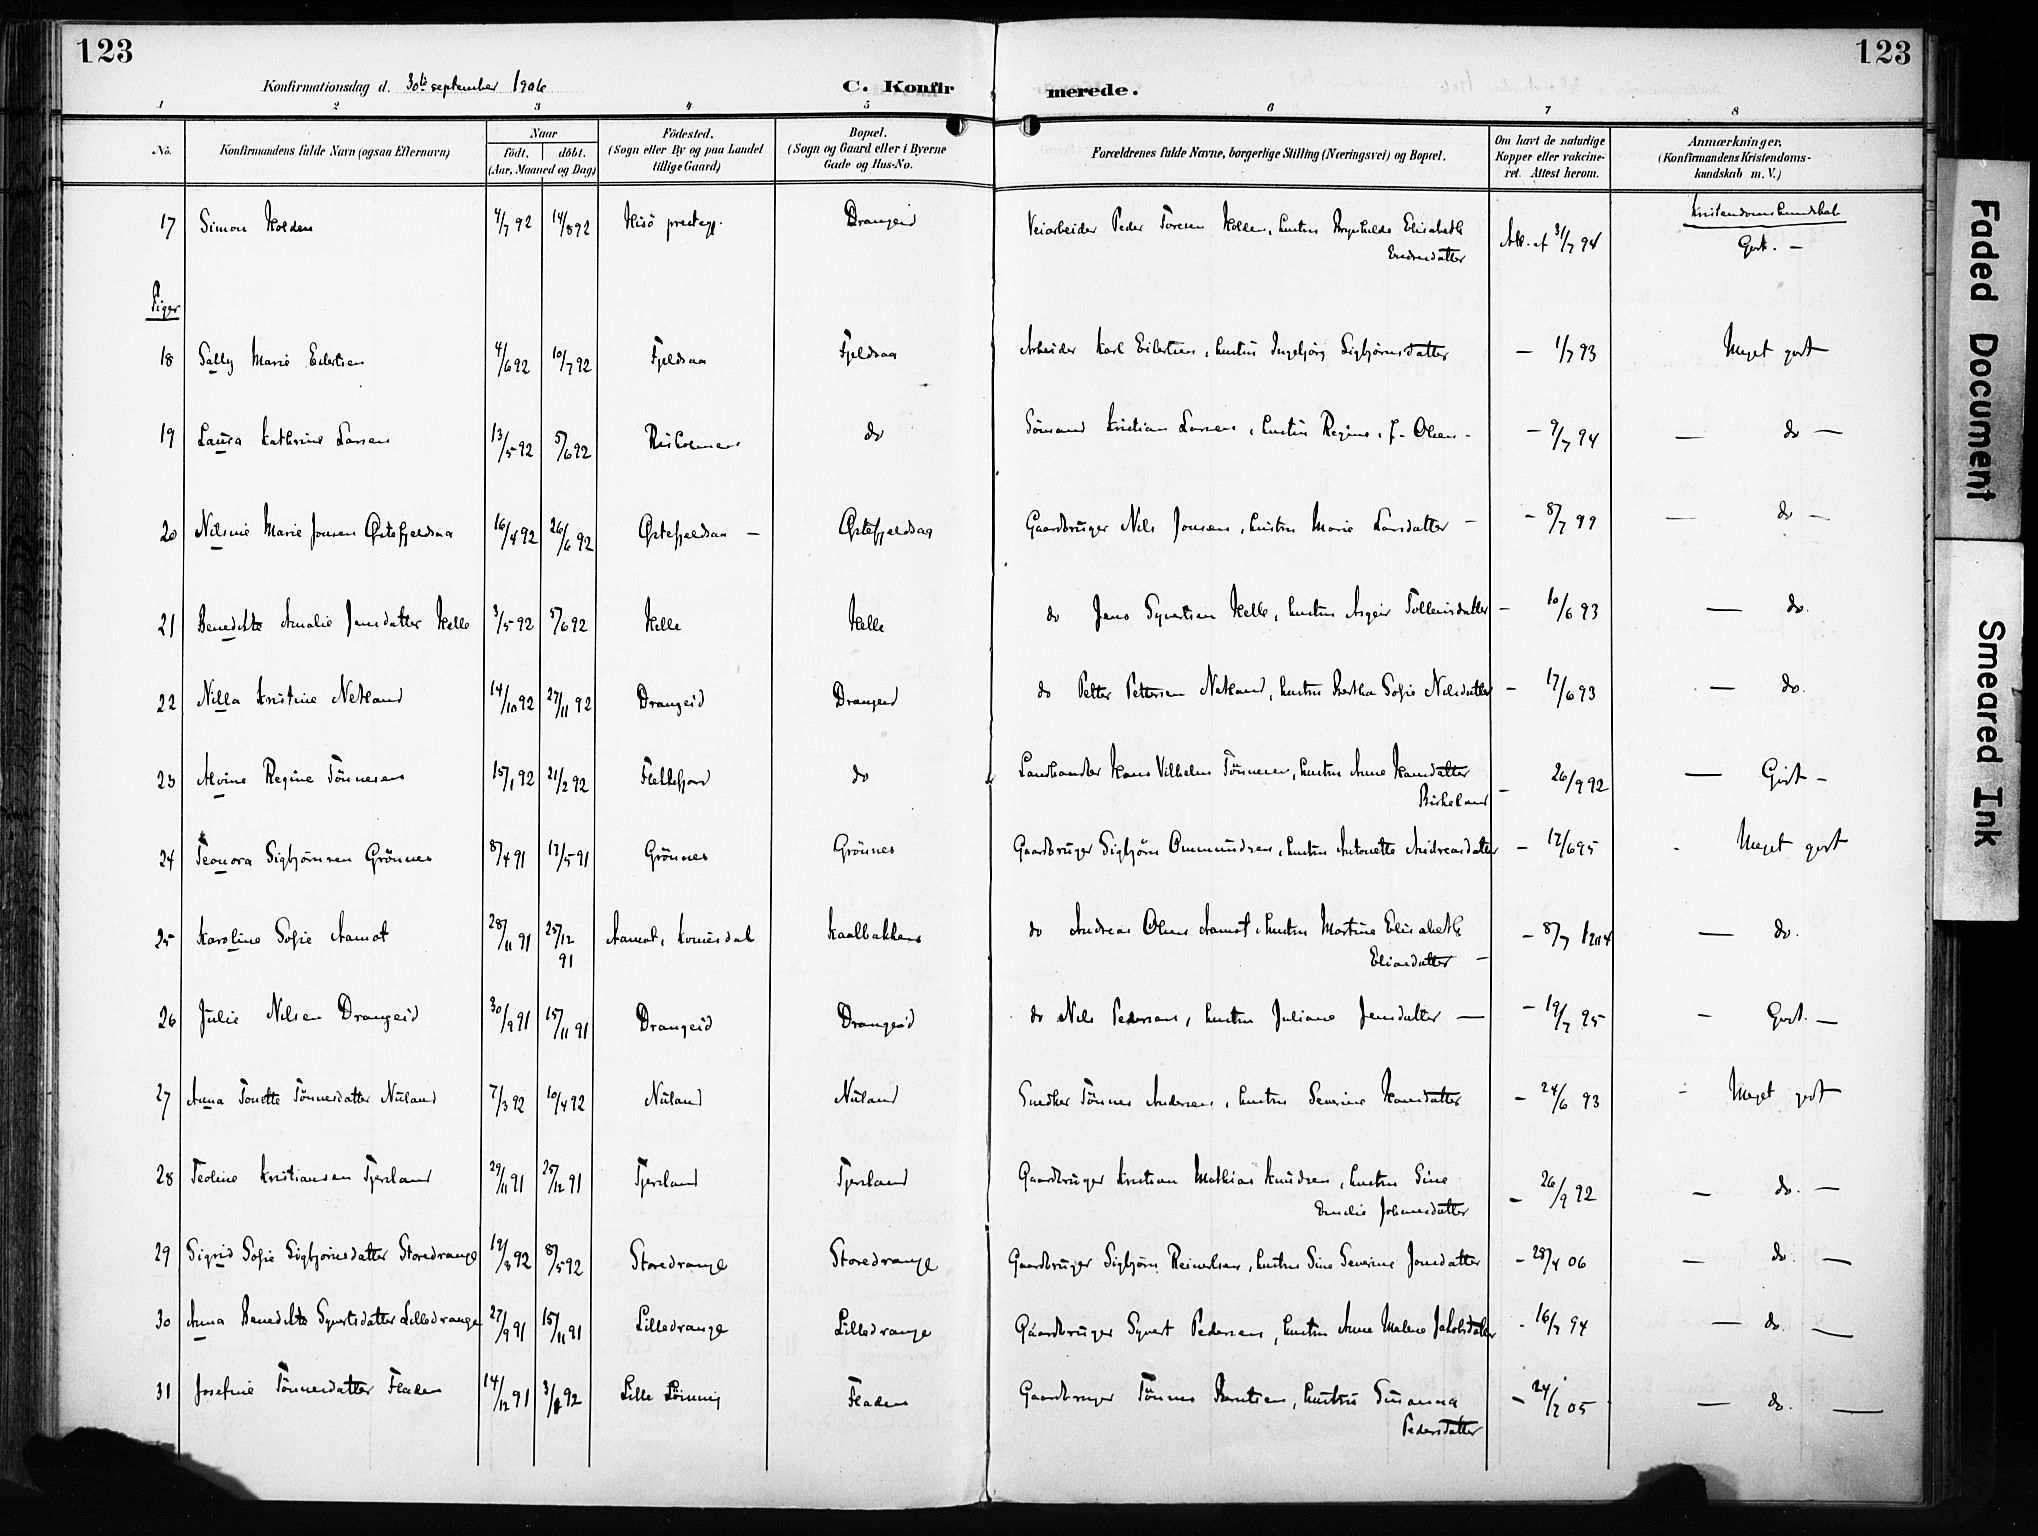 123
123
Konfirmationsdag d. 30te september 1906
C. Konfir merede.
1 2 3 4 5 6 7 8
No.
Konfirmandens fulde Navn (ogsaa Efternavn)
Naar
födt. döbt.
(Aar, Maaned og Dag)
Födested.
(Sogn eller By og paa Landet
tillige Gaard)
Bopæl.
(Sogn og Gaard eller i Byerne
Gade og Hus-No.
Forældrenes fulde Navne, borgerlige Stilling (Næringsvei) og Bopæl.
Om havt de naturlige
Kopper eller vakcine-
ret. Attest herom.
Anmærkninger,
(Konfirmandens Kristendoms-
kundskab m. V.)
Kristendomskundskab
17 Simon Holden 4/7 92 14/8 92 Hisö prestegj. Drangeid Veiarbeider Peder Toresen Holden, hustru Elisabeth Att. af 3/7 94 Godt. —
Endresdatter
Piger
18 Sally Marie Eilertsen 4/6 92 10/7 92 Fjeldsaa Fjeldsaa Arbeider Karl Eilertsen, hustru Ingebjörg Sigbjörnsdatter — 1/7 93 Meget godt
19 Laura Kathrine Larsen 13/5 92 5/6 92 do Sömand Kristian Larsen, hustru Regine, f. Olsen - — 9/7 94 — do —
20 Nilsine Marie Jonsen Östefjeldsaa 16/4 92 26/6 92 Östefjeldsaa — Östefjeldsaa Gaardbruger Nils Jonsen, hustru Marie Larsdatter — - 8/7 99 — do —
21 Benedikte Amalie Jensdatter Helle 3/5 92 5/6 92 Helle Helle do Jens Syvertsen Helle, hustru Asgjer Tolleisdatter — 10/6 93 — do.
22 Nilla Kristine Netland 14/10 92 27/11 92 Drangeid Drangeid do Petter Pettersen Netland, hustru Bertha Sofie Nilsdatter — 17/6 93 — do.
23 Alvine Regine Tönnesen 15/1 92 21/2 92 Flekkefjord do Landhandler Hans Vilhelm Tönnesen, hustru Anne Hansdatter — 26/9 92 — Godt —
Birkeland
24 Teonora Sigbjörnsen Grönnes 8/4 91 17/5 91 Grönnes Grönnes Gaardbruger Sigbjörn Ommundsen, hustru Antonette Andreasdatter — 12/6 95 - Meget godt
25 Karoline Sofie Aamot 28/11 91 25/12 91 Aamot, Kvinesdal Kaalbakken do Andreas Olsen Aamot, hustru Martine Elisabeth — 8/7 — do.
Eliasdatter —
26 Julie Nilsen Drangeid 30/9 91 15/11 91 Drangeid Drangeid do Nils Pedersen, hustru Juliane Jensdatter — — 19/7 95 — Godt. —
27 Anna Tonette Tönnesdatter Nuland 7/3 92 10/4 92 Nuland Nuland Snedker Tönnes Andersen, hustru Severine Hansdatter — 24/6 93 - Meget godt
28 Teoline Kristiansen Tjersland 29/11 91 25/12 91 Tjersland Tjersland Gaardbruger Kristian Mathias Knudsen, hustru Sine — 26/9 92 — do. —
Emelie Johannesdatter
29 Sigrid Sofie Sigbjörnsdatter Storedrange 12/3 92 8/5 92 Storedrange Storedrange Gaardbruger Sigbjörn Reinertsen, hustru Sine Severine Jonsdatter — 28/4 06 — do —
30 Anna Benedikte Syvertsdatter Lilledrange 27/9 91 15/11 91 Lilledrange Lilledrange Gaardbruger Syvert Pedersen, hustru Anne Malene Jakobsdatter - 16/7 94 — do. —
31 Josefine Tönnesdatter Fladen 14/12 91 92 Lille Fladen Gaardbruger Tönnes Berntsen, hustru Susanna — 24/2 05 — do. —
Pedersdatter
Faded Document
Smeared Ink